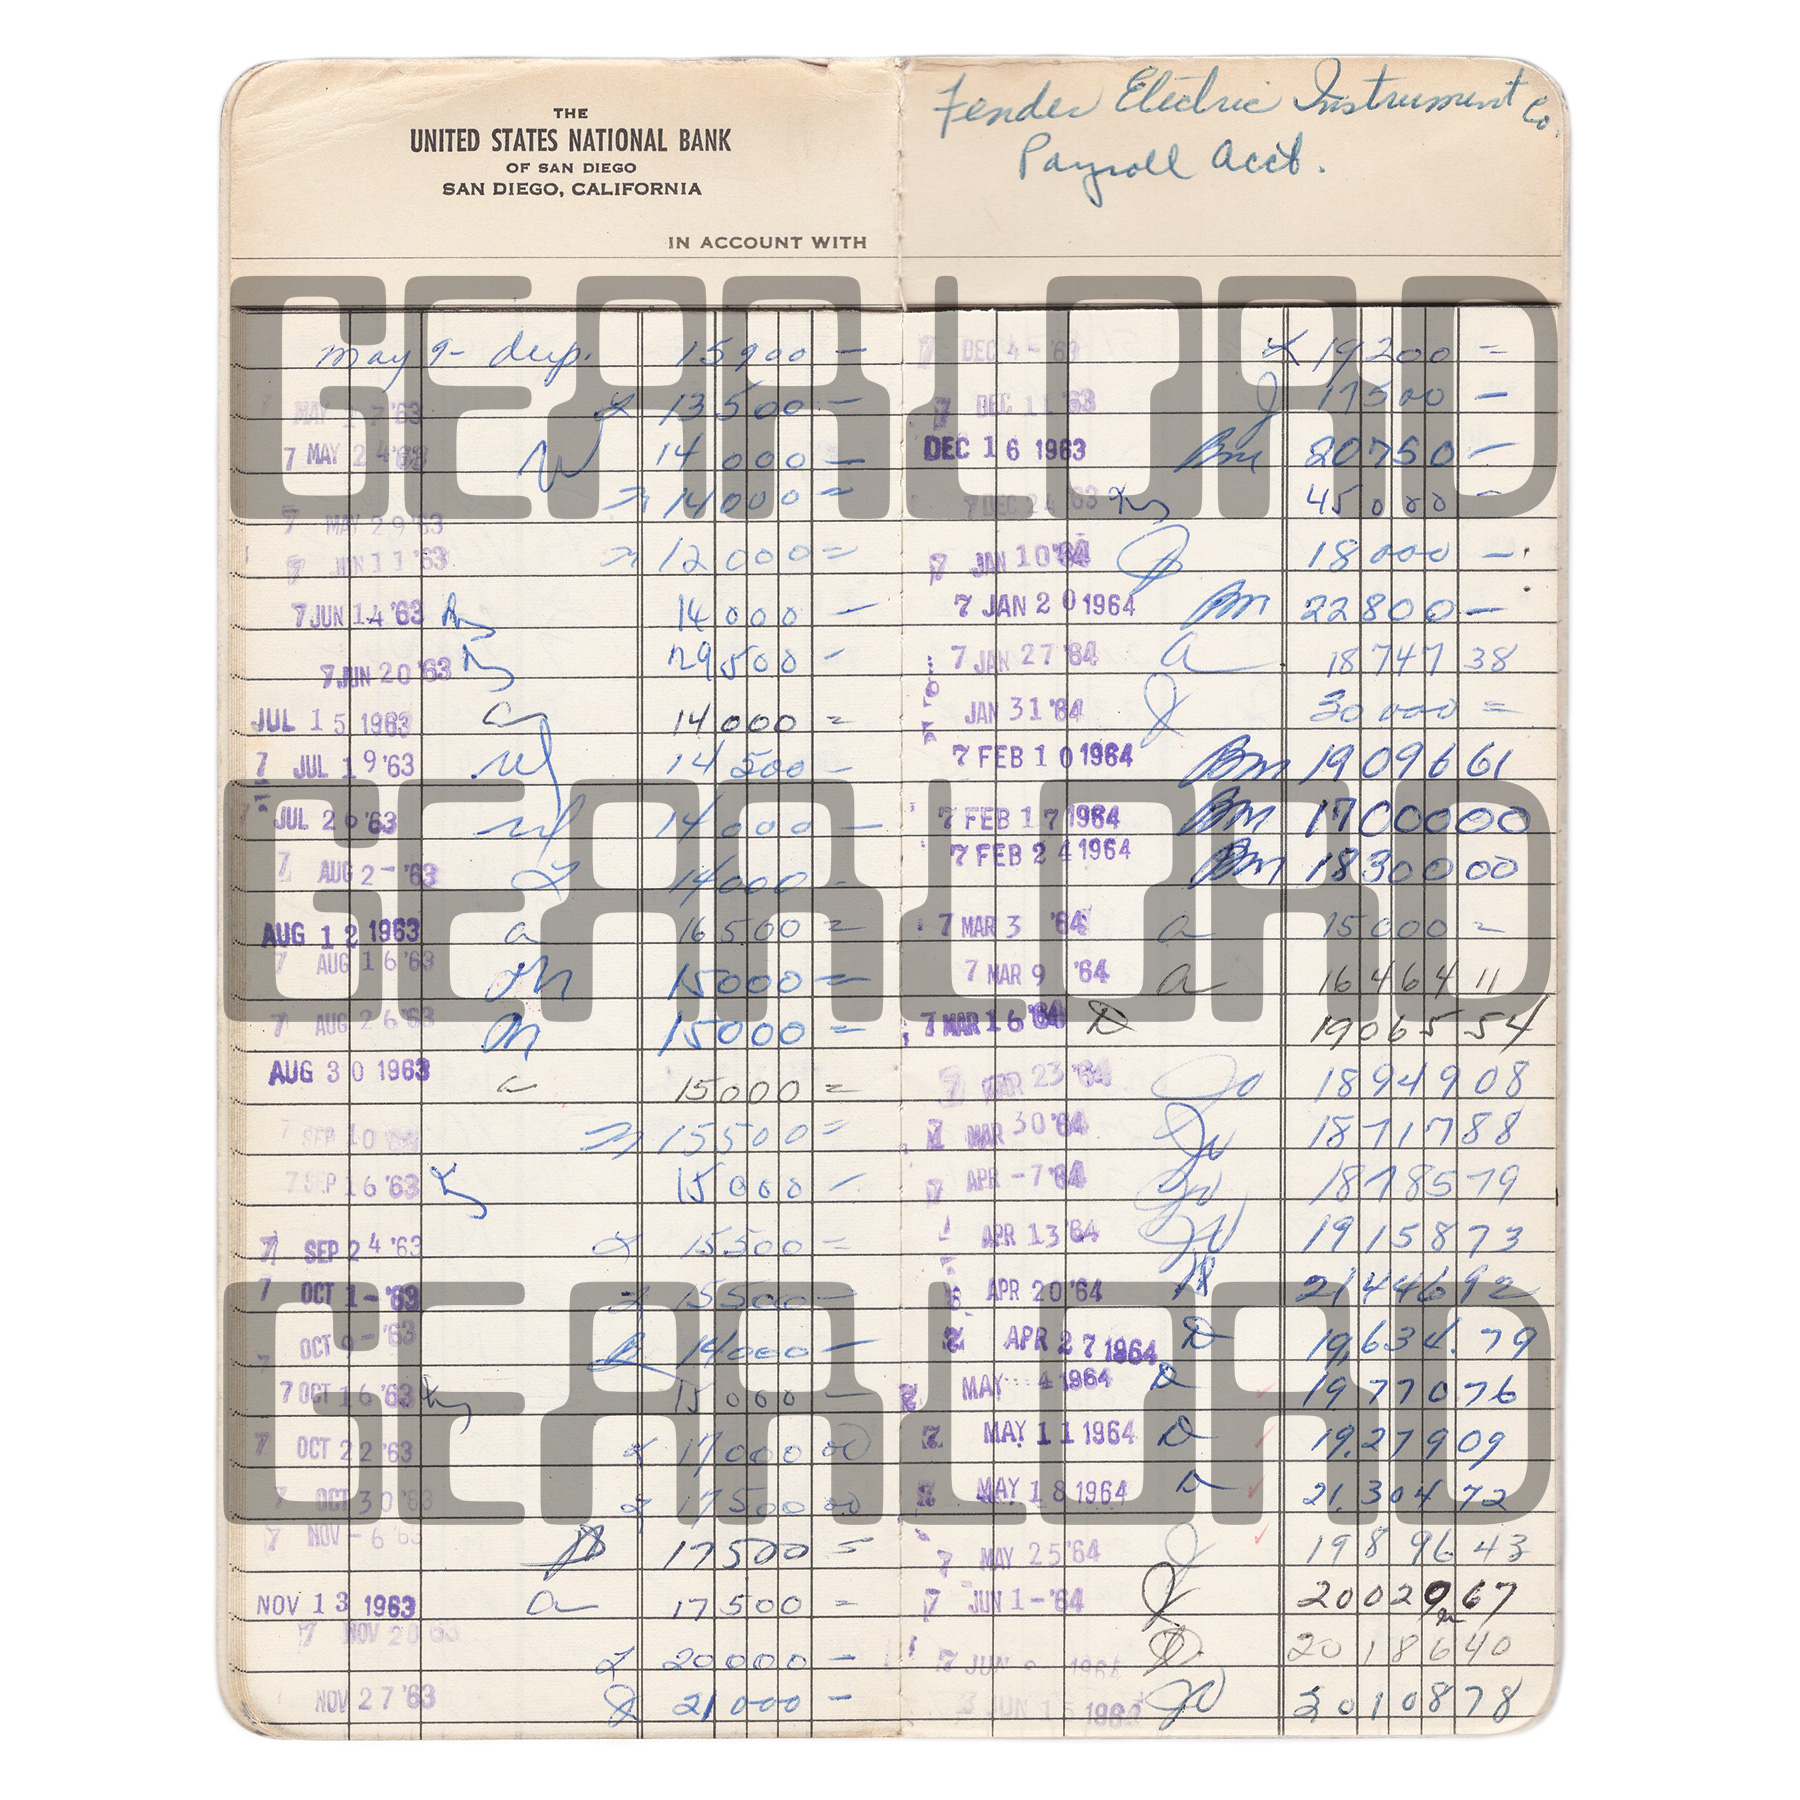 THE
UNITED STATES NATIONAL BANK
OF SAN DIEGO
SAN DIEGO, CALIFORNIA
IN ACCOUNT WITH
May 9- dep. 15900 —
MAY 17 '63 13500 —
7 MAY 24 '63 14000 —
7 MAY 29 '63 14000 =
7 JUN 11 '63 12000 =
7 JUN 14 '63 14000 —
7 JUN 20 '63 29500 —
JUL 15 1963 14000 =
7 JUL 19 '63 14500 —
7 JUL 26 '63 14000 —
7 AUG 2 - '63 14000 —
AUG 12 1963 a 16500 =
7 AUG 16 '63 15000 =
7 AUG 26 '63 15000 =
AUG 30 1963 15000 =
7 SEP 10 '63 15500 =
7 SEP 16 '63 15000 —
7 SEP 24 '63 15500 =
7 OCT 1 - '63 15500 —
7 OCT 9 - '63 14000 —
7 OCT 16 '63 15000 —
7 OCT 22 '63 17000 00
7 OCT 30 '63 17500 00
7 NOV - 6 '63 17500 =
NOV 13 1963 a 17500 =
7 NOV 20 '63 20000 —
NOV 27 '63 21000 —
Fender Electric Instrument Co.
Payroll Acct.
7 DEC 4 - '63 19200 =
7 DEC 11 '63 17500 —
DEC 16 1963 Bm 20750 —
7 DEC 24 '63 45000 —
7 JAN 10 '64 18000 —
7 JAN 20 1964 Bm 22800 —
7 JAN 27 '64 a 18747 38
JAN 31 '64 30000 =
7 FEB 10 1964 Bm 19096 61
7 FEB 17 1964 Bm 17000 00
7 FEB 24 1964 Bm 18300 00
7 MAR 3 '64 a 15000 =
7 MAR 9 '64 a 16464 11
7 MAR 16 '64 D 19065 54
7 MAR 23 '64 18949 08
7 MAR 30 '64 18717 88
7 APR - 7 '64 18785 79
APR 13 '64 19158 73
APR 20 '64 21446 92
APR 27 1964 D 19,634.79
MAY 4 1964 D 19770 76
7 MAY 11 1964 D 19,279 09
MAY 18 1964 D 21,304 72
7 MAY 25 '64 19896 43
7 JUN 1 - '64 20029 67
7 JUN 1964 D 20186 40
JUN 15 1964 20108 78
GEARLORD
GEARLORD
GEARLORD